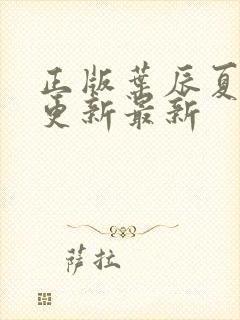 正版叶辰夏
更新最新
萨拉